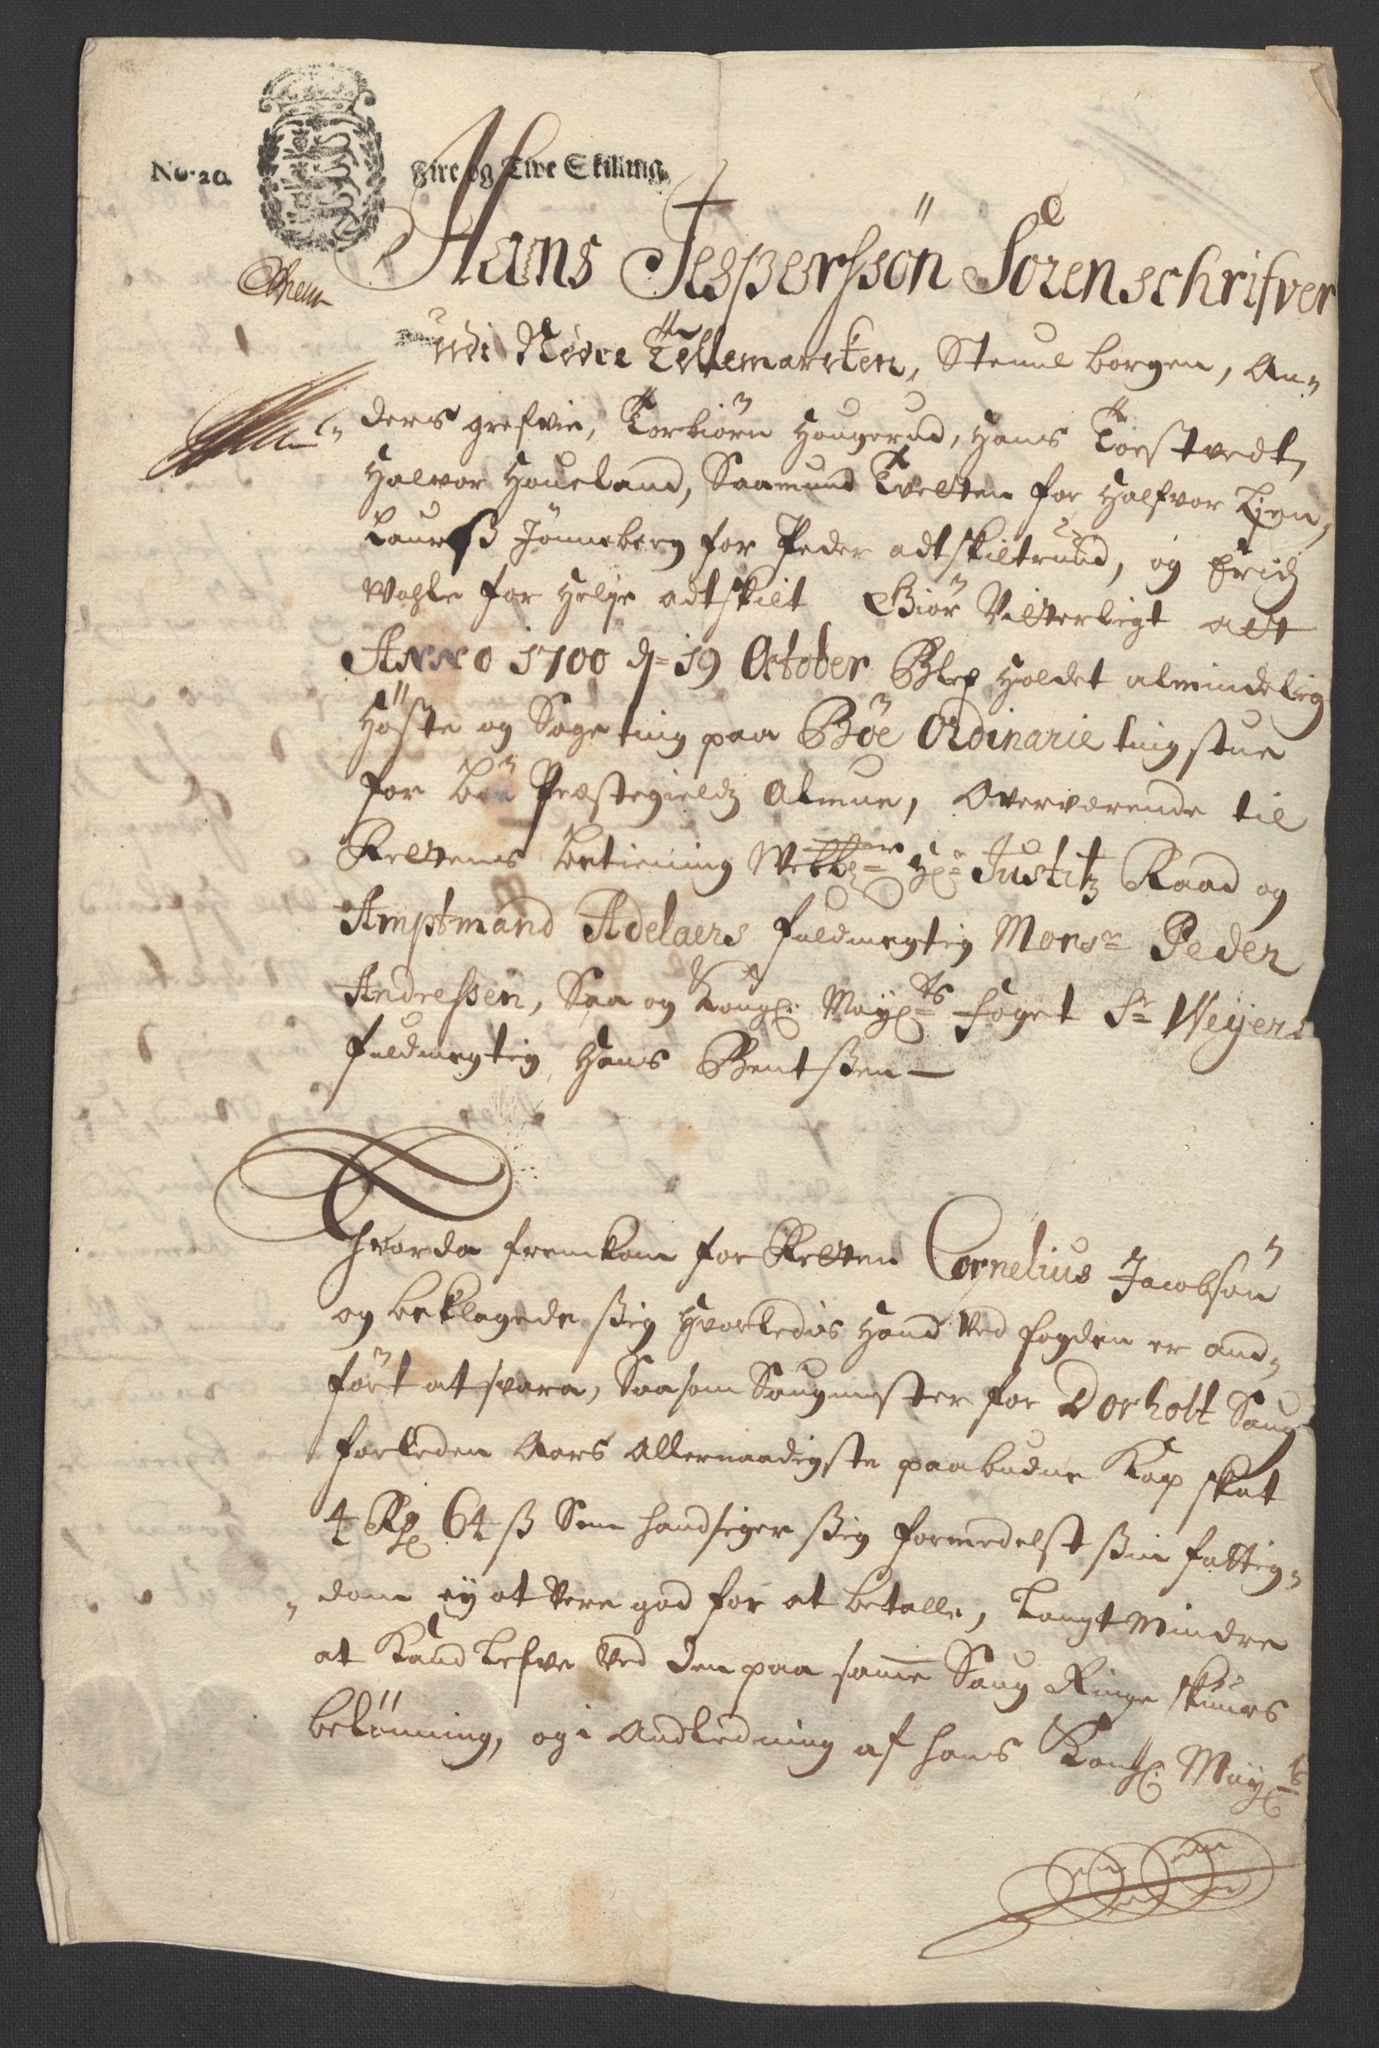 No. 20. Fire og Tive Skilling.
Hans Jesperssön Sorenschrifver
udi Nedre Tellemarcken, Steenul borgen, An=
ders grefvie, Torbiörn Haugerud, Hans Toestvedt,
Halvor Houeland, Saamund Tvetten for Halfvor Lien,
Laurß Jönneberg for Peder adtskiltruud, og Erich
Wahle for Helje adtskilt Giör Vitterligt att
Anno 1700 d= 19 October Blef Holdet almindelig
Höste og Sage ting paa Böe Ordinarie tingstue
for Böe Præstegieldz Almue, Overværende til
Rettens betiening Hr Justitz Raad og
Amptmand Adelaers fuldmegtig Monsr Peder
Andressen, Saa og Kongl: Mayts foget Sr Weyers
fuldmegtig Hans Bentßen —
Hvorda fremkom for Retten Cornelius Jacobsön
og beklagede ßig Hvorledis Hand ved fogden er and=
fört at svara, Saasom Saugmester for Dorholt Saug
forleden Aars Allernaadigste paabudne Kop skat
4 Rd 64 ß Som hand siger ßig formedelst ßin fattig=
dom ey at Vere god for at betalle, Langt Mindre
at Kand Lefve Ved den paa samme Saug Ringe skuurs
belönning, og i Andledning af hans Kongl: Mayts